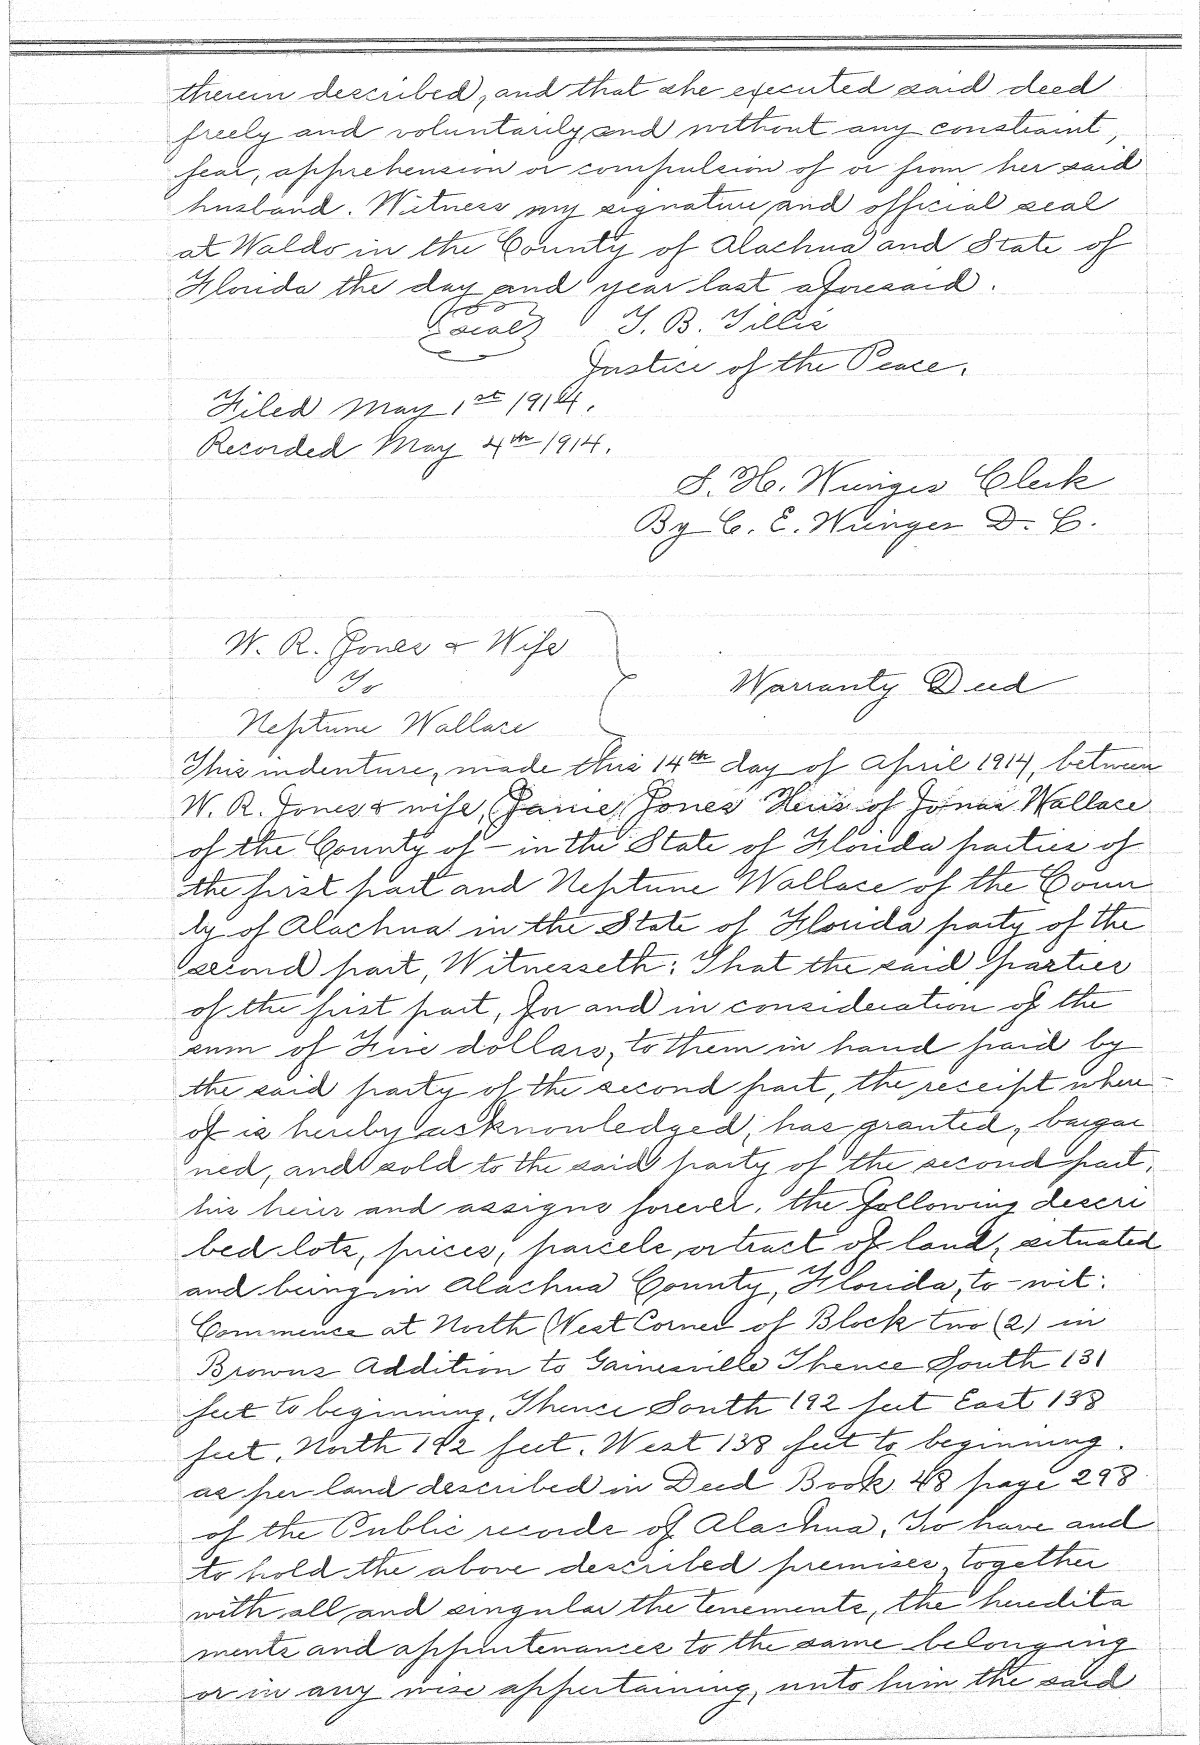 therein described, and that she executed said deed
freely and voluntarily and without any constraint,
fear, apprehension or compulsion of or from her said
husband. Witness my signature and official seal
at Waldo in the County of Alachua and State of
Florida the day and year last aforesaid.
Seal T. B. Tillis
Justice of the Peace.
Filed May 1st 1914.
Recorded May 4th 1914.
S. H. Wienges Clerk
By C. E. Wienges D. C.
W. R. Jones & Wife
To
Neptune Wallace
Warranty Deed
This indenture, made this 14th day of April 1914, between
W. R. Jones & wife, Janie Jones Heirs of Jonas Wallace
of the County of - in the State of Florida parties of
the first part and Neptune Wallace of the Coun
ty of Alachua in the State of Florida party of the
second part, Witnesseth: That the said parties
of the first part, for and in consideration of the
sum of Five dollars, to them in hand paid by
the said party of the second part, the receipt where-
of is hereby acknowledged, has granted, bargai
ned, and sold to the said party of the second part,
his heirs and assigns forever, the following descri
bed lots, pieces, parcels, or tract of land, situated
and being in Alachua County, Florida, to-wit:
Commence at North West Corner of Block two (2) in
Browns Addition to Gainesville Thence South 131
feet to beginning, Thence South 192 feet East 138
feet, North 192 feet, West 138 feet to beginning.
as per land described in Deed Book 48 page 298
of the Public records of Alachua, To have and
to hold the above described premises, together
with all and singular the tenements, the heredita
ments and appurtenances to the same belonging
or in any wise appertaining, unto him the said